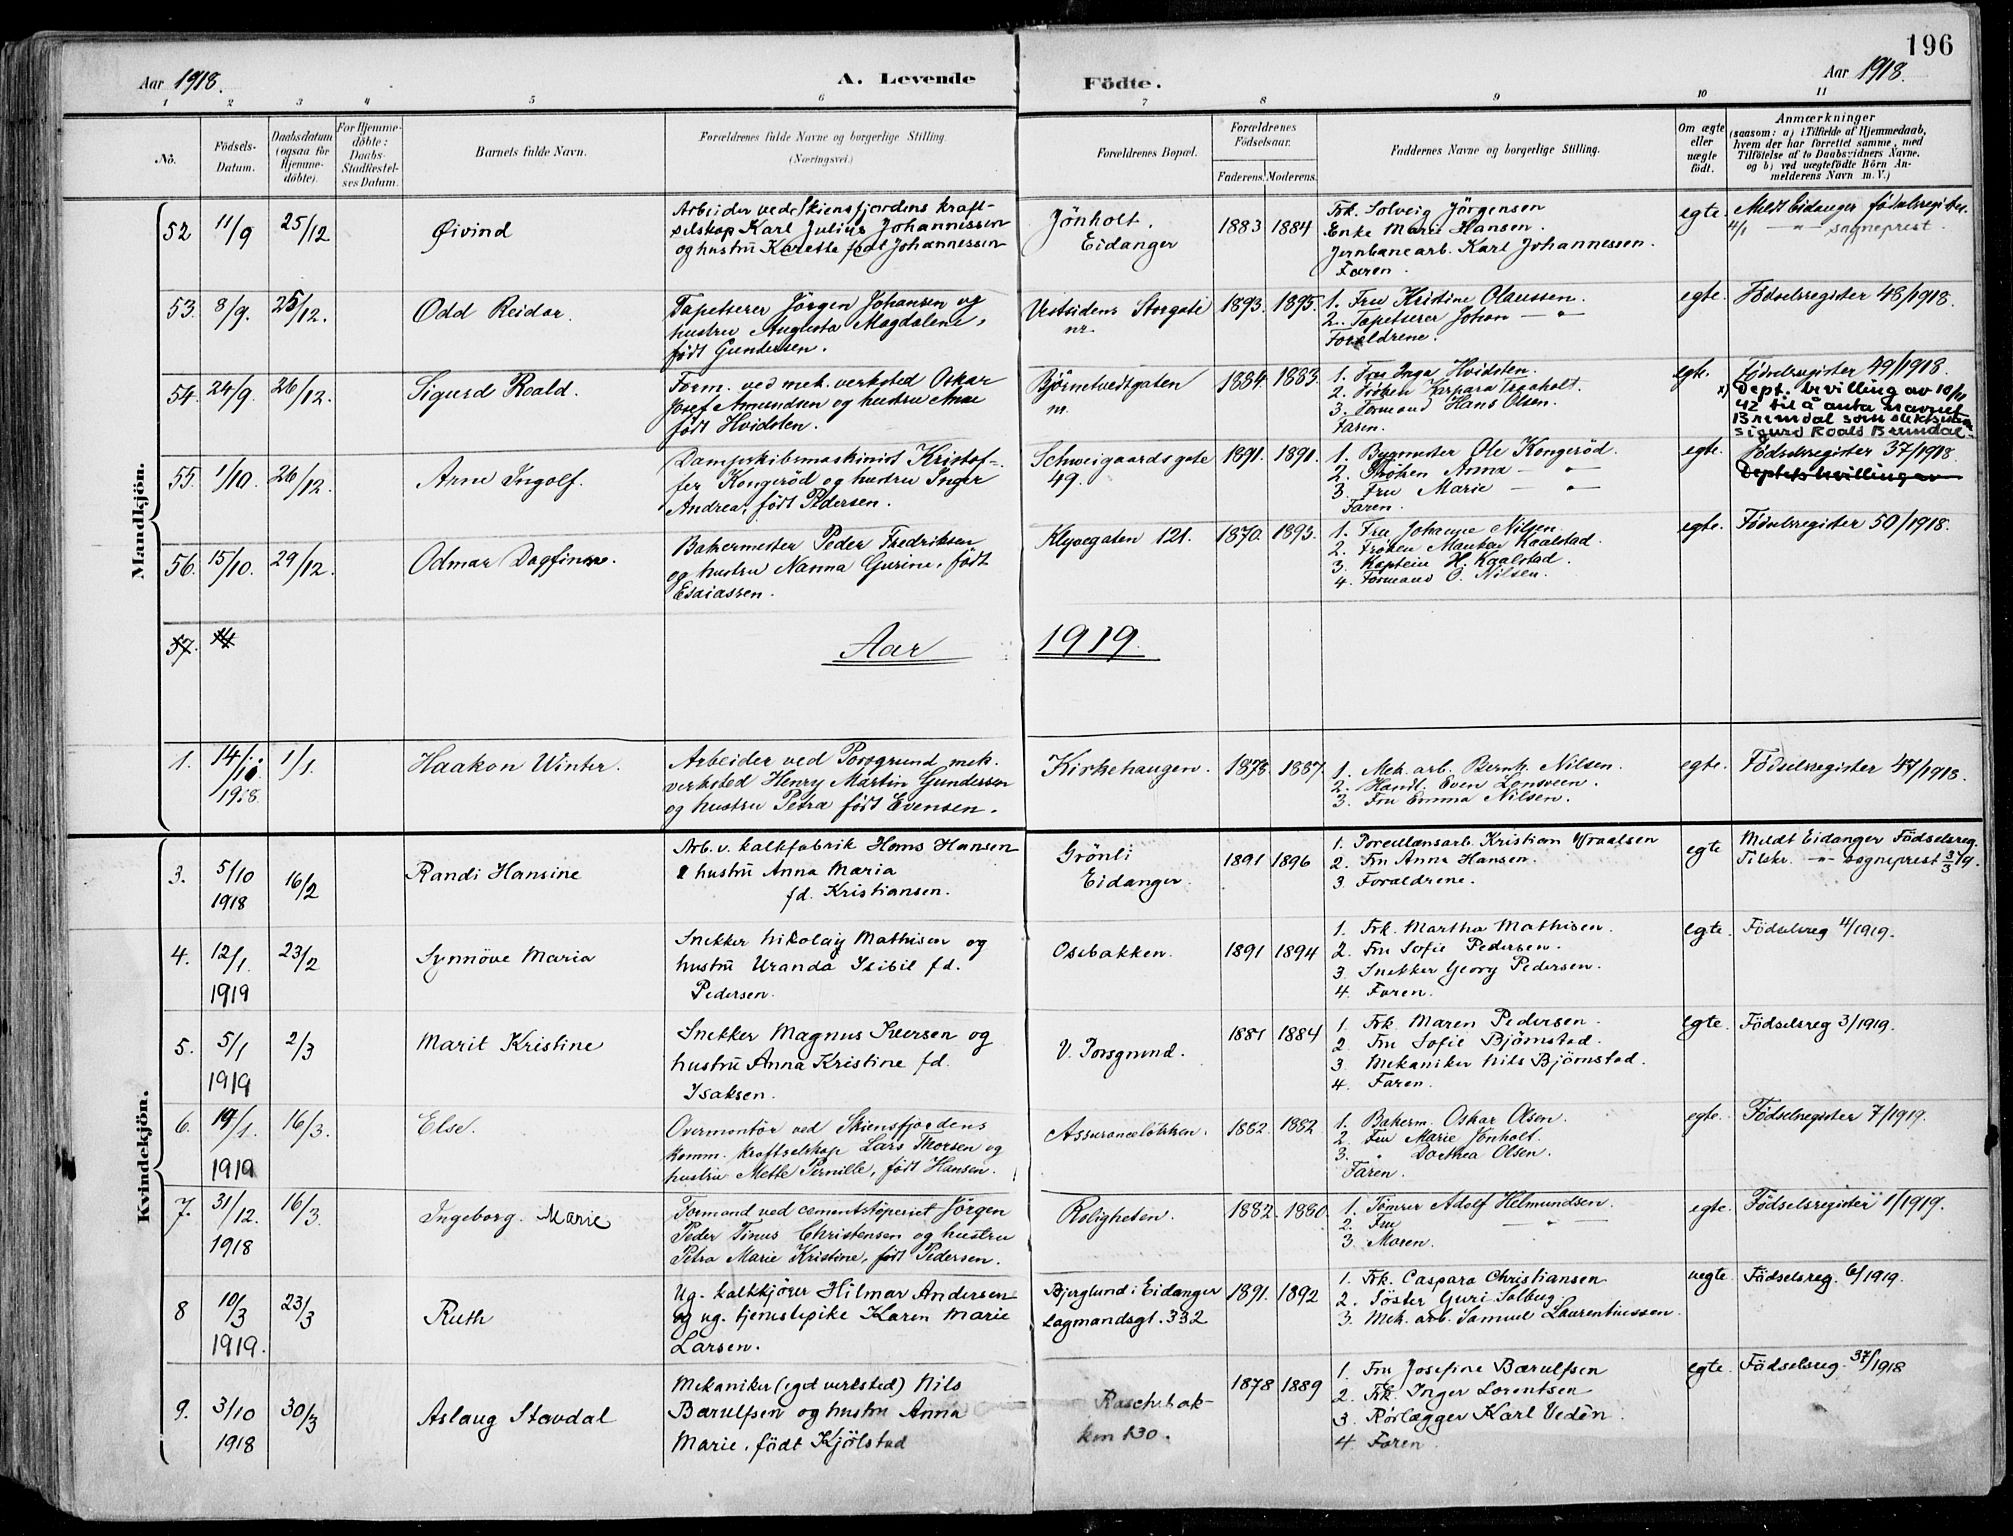 196
Aar 1918.
A. Levende
Födte.
Aar 1918.
1 2 3 4 5 6 7 8 9 10 11
No.
Födsels-
Datum.
Daabsdatum
(ogsaa for
Hjemme-
döbte).
For Hjemme-
döbte:
Daabs-
Stadfæstel-
ses Datum.
Barnets fulde Navn.
Forældrenes fulde Navne og borgerlige Stilling.
(Næringsvei.)
Forældrenes Bopæl.
Forældrenes
Födselsaar.
Faderens. Moderens.
Faddernes Navne og borgerlige Stilling.
Om ægte
eller
uægte
födt.
Anmærkninger
(saasom: a) i Tilfælde af Hjemmedaab,
hvem der har forrettet samme, med
Tilföielse af to Daabsvidners Navne.
og b) ved uægtefödte Börn An-
melderens Navn m. V.)
Mandkjön.
52 11/9 25/12 Øivind
Arbeider ved Skiensfjordens kraft-
selskap Karl Julius Johannissen
og hustru Karette født Johannessen
Jönholt.
Eidanger
1883 1884
Frk. Solveig Jörgensen
Enke Marie Hansen.
Jernbanearb. Karl Johannessen.
Faren.
egte.
Meldt Eidanger födselsregister.
4/1 — " — sogneprest.
53. 8/9. 25/12. Odd Reidar.
Tapetserer Jörgen Johansen og
hustru Augusta Magdalene,
født Gundersen.
Vestsidens Storgate
nr.
1893. 1895.
1. Fru Kristine Olaussen.
2. Tapetserer Johan — " —
Foreldrene.
egte. Fødselsregister 48/1918.
54. 24/9. 26/12. Sigurd Roald.
Form. ved mek. verksted Oskar
Josef Amundsen og hustru Anne
født Hvidsten.
Björntvedtgaten
nr.
1884. 1883.
1. Fru Inga Hvidsten.
2. Frøken Kaspara Traaholt.
3. Formand Hans Olsen.
Faren.
egte. Fødselsregister 49/1918.
x) Dept. bevilling av 10/11
42 til å anta navnet
Bremdal som slektsnavn
Sigurd Roald Bremdal.
55. 1/10. 26/12. Arne Ingolf.
Dampskibsmaskinist Kristof-
fer Kongerød og hustru Inger
Andrea, født Pedersen.
Schweigaardsgate
49.
1891. 1891.
1. Bygmester Ole Kongerød.
2. Frøken Anna — " —
3. Fru Marie — " —
Faren.
egte. Fødselsregister 37/1918.
Deptets bevilling av
56. 15/10. 29/12. Odmar Dagfinn.
Bakermester Peder Fredriksen
og hustru Nanna Gurine, født
Esaiassen.
Klevegaten 121. 1870. 1893.
1. Fru Johanne Nilsen.
2. Frøken Kaalstad.
3. Kaptein H. Kaalstad.
4. Formand O. Nilsen.
egte. Fødselsregister 50/1918.
57.
Aar 1919.
1. 14/10. 1918. 1/1. Haakon Winter.
Arbeider ved Porsgrund mek.
verksted Henry Martin Gundersen
og hustru Petra født Evensen.
Kirkehaugen. 1878. 1887.
1. Mek. arb. Bernh. Nilsen.
2. Handl. Even Lonsveen.
3. Fru Emma Nilsen.
egte. Fødselsregister 47/1918.
Kvindekjön.
3. 5/10 1918 16/2 Randi Hansine
Arb. v. kalkfabrik Hans Hansen
& hustru Anna Maria
fd. Kristiansen.
Grönli
Eidanger.
1891 1896
1. Porcellænsarb. Kristian Wraalsen
2. Fru Anna Hansen.
3. Foraldrene.
egte
Meldt Eidanger Födselsreg.
Tilskr. — " — sogneprest 3/3 19.
4. 12/1. 1919 23/2 Synnöve Maria
Snekker Nikolay Mathisen og
hustru Uranda Isibil fd.
Pedersen.
Osebakken. 1891 1894
1. Frk. Martha Mathisen.
2. Fru Sofie Pedersen.
3. Snekker Georg Pedersen.
4. Faren.
egte. Födselsreg 4/1919.
5. 5/1 1919 2/3 Marit Kristine
Snekker Magnus Iversen og
hustru Anna Kristine fd.
Isaksen.
V. Porsgrund. 1881 1884
1. Frk. Maren Pedersen.
2 Fru Sofie Björnstad.
3. Mekaniker Nils Björnstad.
4. Faren.
egte. Födselsreg 3/1919.
6. 19/1. 1919 16/3. Else.
Overmontör ved Skiensfjordens
komm. kraftselskap Lars Thorsen og
hustru Mette Pernille, født Hansen.
Assuranceløkken. 1882. 1882
1. Bakerm. Oskar Olsen.
2. Fru Marie Jönholt.
3. " Dorthea Olsen.
Faren.
egte. Fødselsregister 7/1919.
7. 31/12. 1918 16/3. Ingeborg. Marie
Formand ved cementstøperiet Jørgen
Peder Tinus Christensen og hustru
Petra Marie Kristine, født Pedersen.
Roligheten. 1882. 1880.
1. Tømrer Adolf Helmundsen.
2. Fru — " —
3. Moren.
egte. Fødselsregister 1/1919.
8 10/3 1919. 23/3 Ruth
Ug. kalkkjører Hilmar Andersen
og ug. tjenestepike Karen Marie
Larsen.
Bjerglund i Eidanger
Lagmandsgt. 332
1891. 1892
1. Frk. Caspara Christiansen
2. Söster Guri Solberg.
3. Mek. arb. Samuel Laurentiussen.
uegte. Födselsreg. 6/1919.
9. 3/10 1918 30/3 Aslaug Stavdal
Mekaniker (eget verksted) Nils
Barulfsen og hustru Anna
Marie, födt Kjölstad
Raschebak-
ken 130.
1878 1889
1. Fru Josefine Barulfsen
2. Frk. Inger Lorentsen
3. Rörlægger Karl Vedén.
4. Faren.
egte. Födselsreg. 37/1918